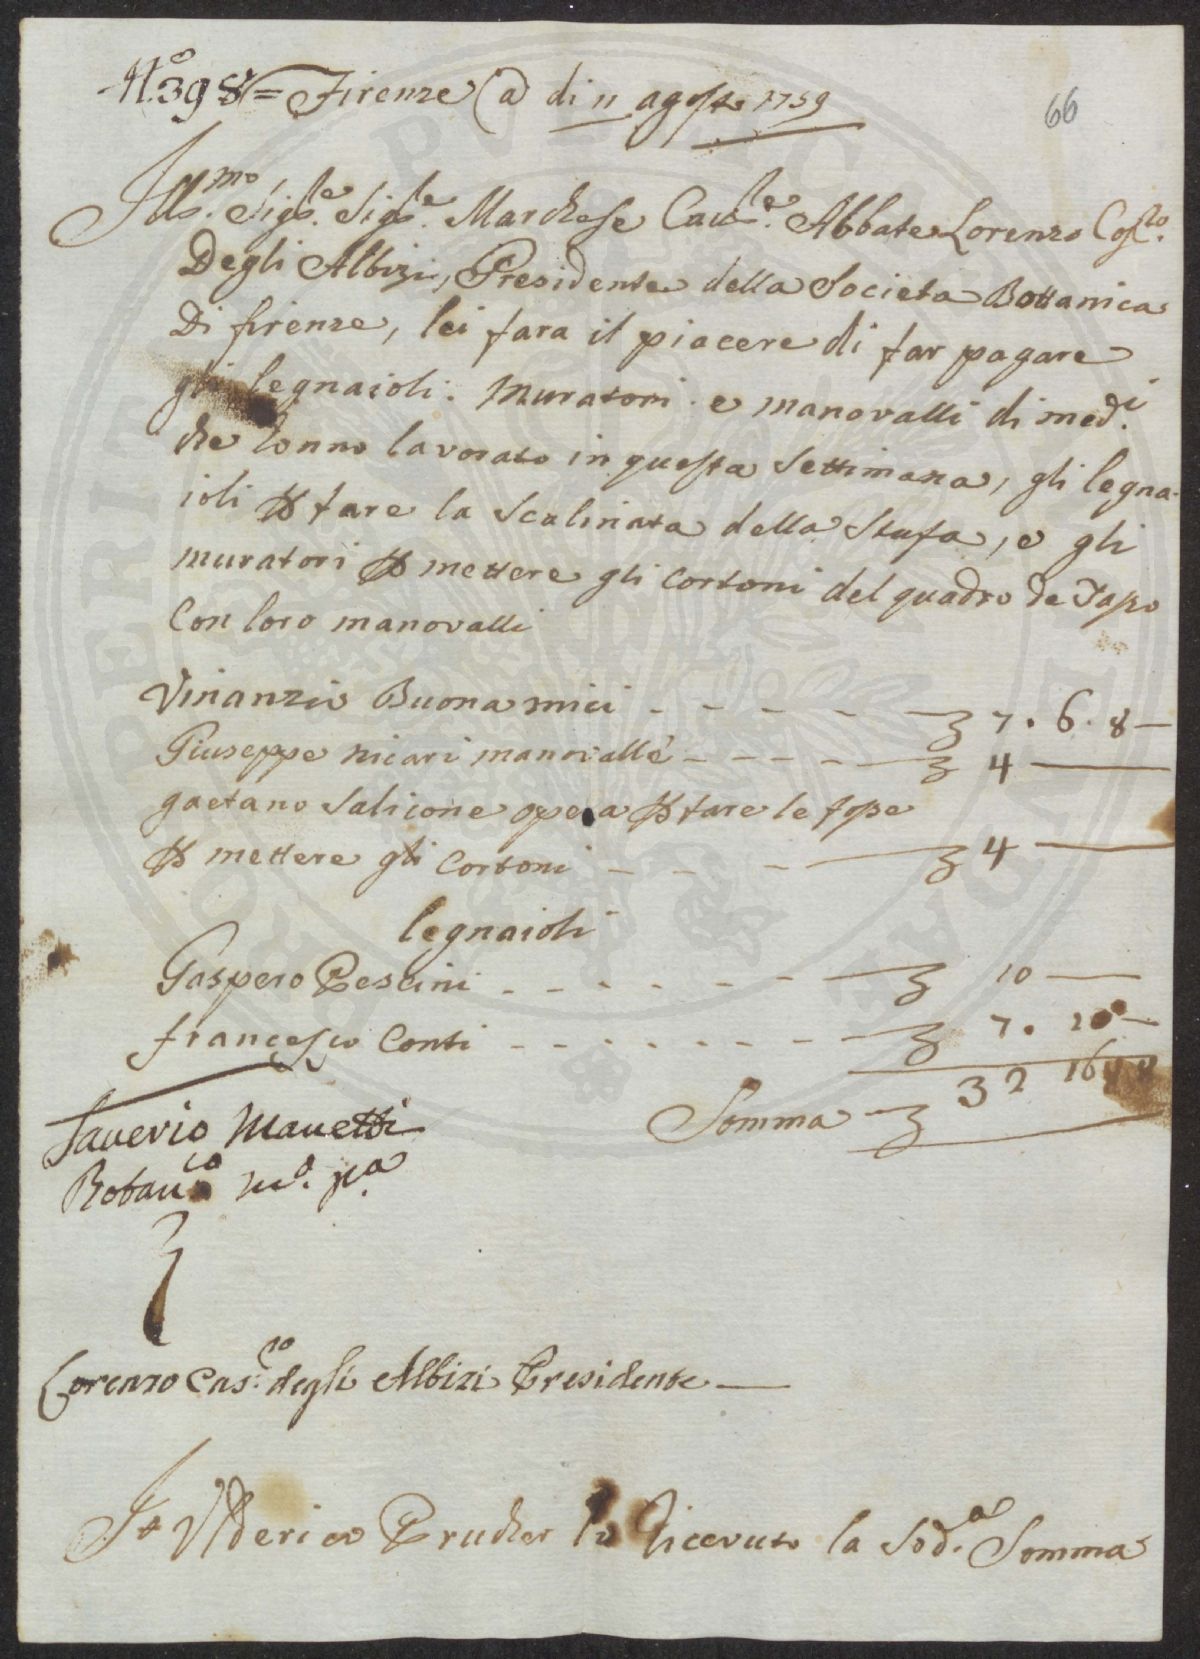 N.o 398 = Firenze a di 11 agosto 1759
66
Ill.mo Sig.re Sig.re Marchese Cav.re Abbate Lorenzo Cost.o
Degli Albizi, Presidente della Societa Bottanica
Di firenze, lei fara il piacere di far pagare
gli legnaioli. Muratori e manovalli di med.i
che lonno lavorato in questa settimana, gli legna-
ioli p fare la scalinata della stufa, e gli
muratori p mettere gli cortoni del quadro de
Con loro manovalli
Vinanzio Buonamici - - - - 7. 6. 8 —
Giuseppe nicari manovalle - - - - 4 —
gaetano Salicone opera p fare le fosse
p mettere gli cortoni - - - 4 —
legnaioli
Gaspero Pescini - - - - - - 10 —
francesco Conti - - - - - - 7. 10 —
Somma 32 16 8
Saverio Manetti
Botan.co m.o p.a
Lorenzo Cas.no degli Albizi Presidente —
Io Ulderico Prucher ho Ricevuto la Sod.a Somma